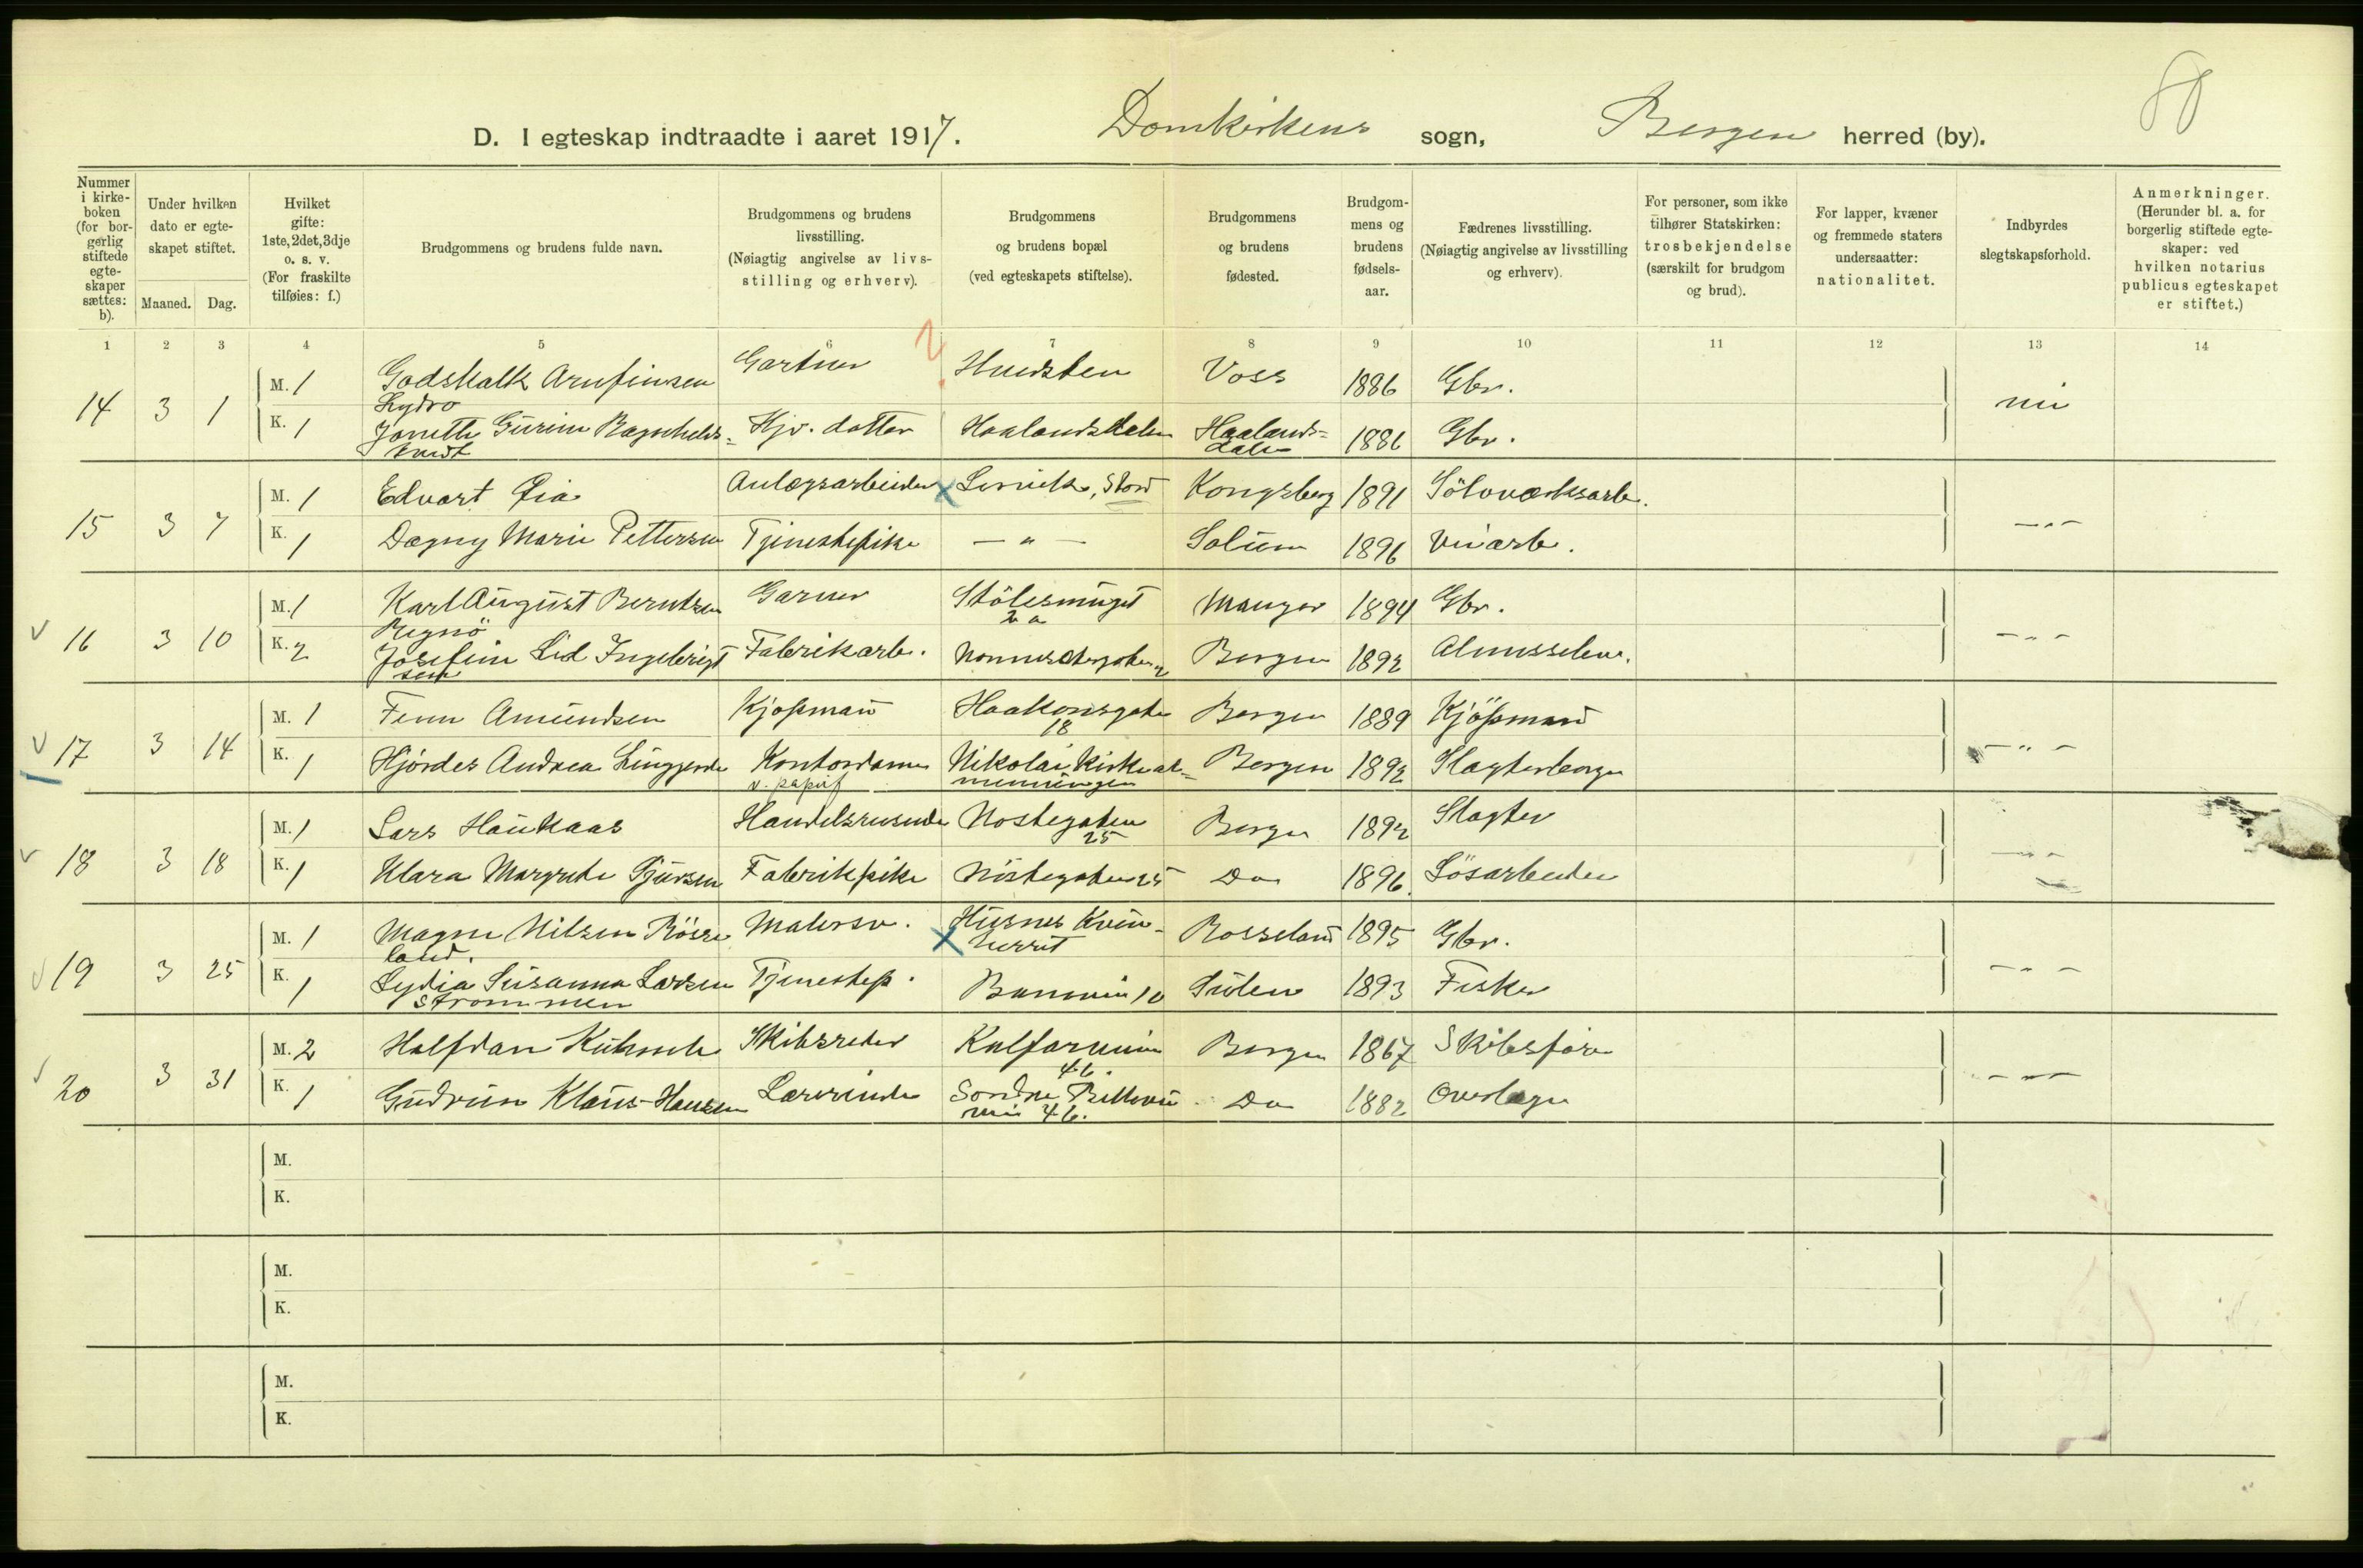 80
D. I egteskap indtraadte i aaret 1917. Domkirkens sogn, Bergen herred (by).
Nummer i kirke- boken (for bor- gerlig stiftede egte- skaper sættes: b).
Under hvilken dato er egte- skapet stiftet.
Maaned. Dag.
Hvilket gifte: 1ste, 2det, 3dje o. s. v. (For fraskilte tilføies: f.)
Brudgommens og brudens fulde navn.
Brudgommens og brudens livsstilling. (Nøiagtig angivelse av livs- stilling og erhverv).
Brudgommens og brudens bopæl (ved egteskapets stiftelse).
Brudgommens og brudens fødested.
Brudgom- mens og brudens fødsels- aar.
Fædrenes livsstilling. (Nøiagtig angivelse av livsstilling og erhverv).
For personer, som ikke tilhører Statskirken: trosbekjendelse (særskilt for brudgom og brud).
For lapper, kvæner og fremmede staters undersaatter: nationalitet.
Indbyrdes slegtskapsforhold.
Anmerkninger. (Herunder bl. a. for borgerlig stiftede egte- skaper: ved hvilken notarius publicus egteskapet er stiftet.)
1 2 3 4 5 6 7 8 9 10 11 12 13 14
14 3 1 M. 1 Godskalk Arnfinsen Gartner Voss 1886 Gbr. nei
Lydvo
K. 1 Jonette Gurine Ragnhilds- Gjv. datter Haalandsdalen Haalands- 1886 Gbr.
dalen
15 3 7 M. 1 Edvart Lia Anlægsarbeider x Lervik, Stord Kongsberg 1891 Sölvverksarb. — " —
K. 1 Dagny Marie Pettersen Tjenestepike — " — Solum 1896 Veiarb.
v 16 3 10 M. 1 Karl August Berntsen Garver Stölesmuget Manger 1894 Gbr. — " —
2 a
K. 2 Josefine Lid Ingebrigt Fabrikarb. Bergen 1892
sen
v 17 3 14 M. 1 Finn Amundsen Kjøpmand Haakonsgaten Bergen 1889 Kjöpmand — " —
18
K. 1 Hjördes Andrea Kontordame Nikolai Kirke al- Bergen 1892
menningen
v 18 3 18 M. 1 Lars Haukaas Handelsreisende Nøstegaten Bergen 1892 Slagter — " —
25
K. 1 Klara Margrete Sjursen Fabrikpike Nøstegaten 25 Do 1896 Lösarbeider
v 19 3 25 M. 1 Magne Nilsen Rösse Malersv. x Husnes Kvin- Rosseland 1895 Gbr. — " —
land. herret
K. 1 Lydia Susanna Larsen Tjenestep. Sulen 1893 Fisker
Strommen
v 20 3 31 M. 2 Halfdan Kuhnle Skibsreder Kalfarveien Bergen 1867 Skibsfører — " —
46.
K. 1 Gudrun Klaus-Hansen Lærerinde Sondre Bellevue Do 1882 Overlæge
vei 46.
M.
K.
M.
K.
M.
K.